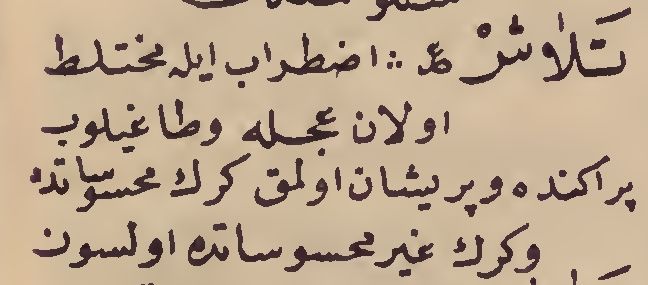 تَلاشْ ع ∴ اضطراب ايله مختلط
اولان عجله وطاغيلوب
پراكنده وپريشان اولمق كرك محسوساتده
وكرك غير محسوساتده اولسون